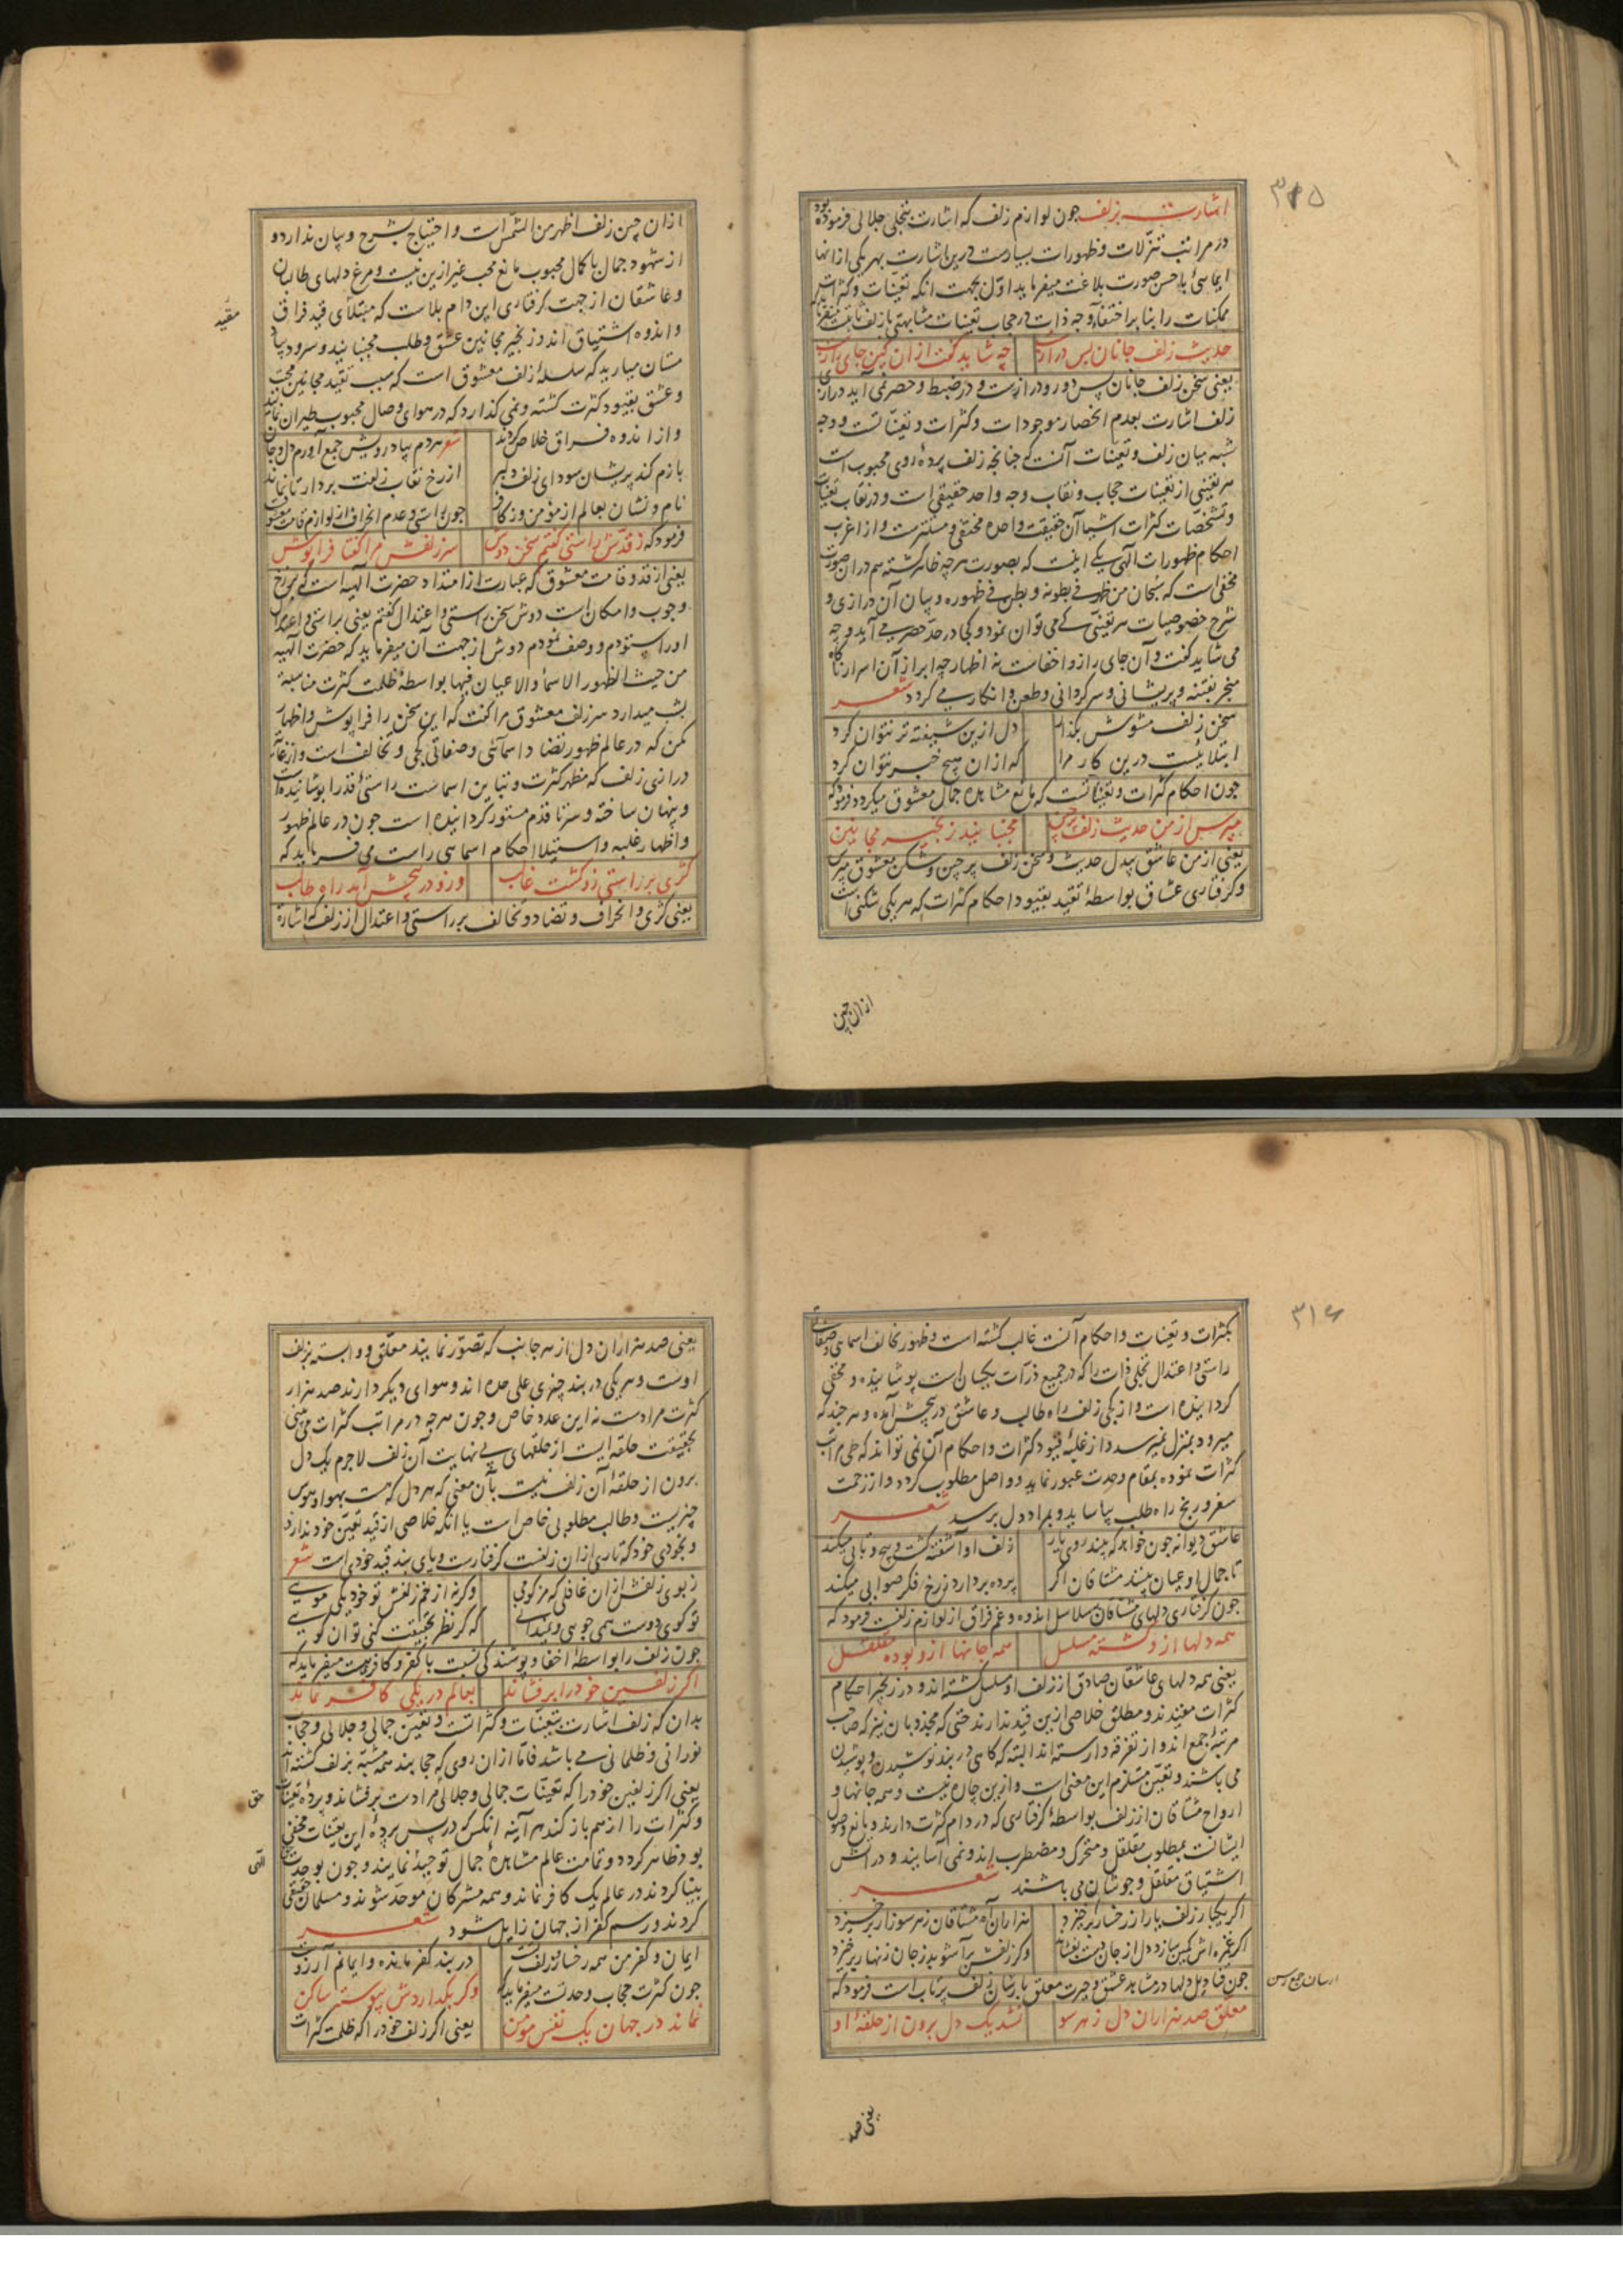 ۳۱۵
اشارت بزلف چون لوازم زلف که اشارت بتجلی جلالی فرموده بود
در مراتب تنزلات و ظهورات بسیارست درین اشارت بهر یکی از آنها
ایمایی باحسن صورت بلاغت میفرماید اول بجهت آنکه تعینات و کثرات
ممکنات را بنابر اختفاء وجه ذات در حجاب تعینات مشابهتی با زلف ثابتست میفرماید
حدیث زلف جانان بس درازست چه شاید گفت ازان کین جای رازست
یعنی سخن زلف جانان بس دور و درازست و در ضبط و حصر نمی آید درازی
زلف اشارت بعدم انحصار موجودات و کثرات و تعینات است و وجه
شبه میان زلف و تعینات آنست که چنانچه زلف پرده روی محبوب است
هر تعینی از تعینات حجاب و نقاب وجه واحد حقیقی است و در نقاب تعینات
و تشخصات کثرات اشیا آن حقیقت واحده مختفی و مستترست و از اغرب
احکام ظهورات الهی یکی اینست که بصورت هرچه ظاهر گشته هم در آن صورت
مخفی است که سبحان من ظهر فی بطونه و بطن فی ظهوره و بیان آن درازی و
شرح خصوصیات هر تعینی کی می توان نمود و کجا در حد حصر می آید و چه
می شاید گفت و آن جای راز و اخفاست نه اظهار چه ابراز آن اسرار ناگاه
منجر بفتنه و پریشانی و سرگردانی و طعن و انکار می گردد شعر
سخن زلف مشوش بگذار دل ازین شیفته تر نتوان کرد
ابتلائیست درین کار مرا که ازان هیچ خبر نتوان کرد
چون احکام کثرات و تعیناتست که مانع مشاهده جمال معشوق میگردد فرمود که
مپرس از من حدیث زلف پرچین مجنبانید زنجیر مجانین
یعنی از من عاشق بیدل حدیث و سخن زلف پر چین و شکن معشوق مپرس
و گرفتاری عشاق بواسطهٔ تقید بقیود احکام کثرات که هر یکی شکنی است
ازان چین
ازان چین زلف اظهر من الشمس است و احتیاج بشرح و بیان ندارد و
از شهود جمال باکمال محبوب مانع محب غیر ازین نیست و مرغ دلهای طالبان
و عاشقان از جهت گرفتاری این دام بلاست که مبتلای قید فراق
مقید
و اندوه اشتیاق اند و زنجیر مجانین عشق و طلب مجنبانید و سرود بیاد
مستان میارید که سلسلهٔ زلف معشوق است که سبب تقید مجانین محبت
و عشق بقیود کثرت گشته و نمی گذارد که در هوای وصال محبوب طیران نمایند
و از اندوه فراق خلاص گردند شعر هر دم بیاد رویش جمع آورم دل و جان
بازم کند پریشان سودای زلف دلبر از رخ نقاب زلفت بردار تا نماند
نام و نشان بعالم از مؤمن و ز کافر چون راستی و عدم انحراف از لوازم قامت معشوقست
فرمود که ز قدش راستی گفتم سخن دوش سر زلفش مرا گفتا فراپوش
یعنی از قد و قامت معشوق که عبارت از امتداد حضرت الهیه است که برزخ
وجوب و امکان است دوش سخن راستی و اعتدال گفتم یعنی براستی و اعتدال
او را ستودم و وصف نمودم دوش از جهت آن میفرماید که حضرت الهیه
من حیث الظهور الاسماء و الاعیان فیها بواسطهٔ ظلمت کثرت مناسبة
بشب میدارد سر زلف معشوق مرا گفت که این سخن را فراپوش و اظهار
مکن که در عالم ظهور تضاد اسمائی و صفاتی کجی و تخالف است و از غایت
درازی زلف که مظهر کثرت و تباین اسماست راستئ قد را پوشانیده است
و پنهان ساخته و سر تا قدم مستور گردانیده است چون در عالم ظهور
و اظهار غلبه و استیلا احکام اسمایی راست می فرماید که
کژی بر راستی زو گشت غالب وزو در پیچش آمد راه طالب
یعنی کژی و انحراف و تضاد و تخالف بر راستی و اعتدال از زلف که اشارة
۳۱۶
بکثرات و تعینات و احکام آنست غالب گشته است و ظهور تخالف اسمایی و صفاتی
راستی و اعتدال تجلی ذات را که در جمیع ذرات یکسان است پوشانیده و مخفی
گردانیده است و از کجی زلف راه طالب و عاشق در پیچش آمده و هر چند که
میرود بمنزل نمیرسد و از غلبهٔ قیود کثرات و احکام آن نمی تواند که طی مراتب
کثرات نموده بمقام وحدت عبور نماید و واصل مطلوب گردد و از زحمت
سفر و رنج راه طلب بیاساید و بمراد دل برسد شعر
عاشق دیوانه چون خواهد که بیند روی یار زلف او آشفته گشت و پیچ و تابی میکند
تا جمال او عیان بینند مشتاقان اگر پرده بردارد ز رخ فکر صوابی میکند
چون گرفتاری دلهای مشتاقان بسلاسل اندوه و غم فراق از لوازم زلفست فرمود که
همه دلها ازو گشته مسلسل همه جانها ازو بوده مقلقل
یعنی همه دلهای عاشقان صادق از زلف او مسلسل گشته اند و در زنجیر احکام
کثرات مقیدند و مطلق خلاصی ازین قید ندارند حتی که مجذوبان نیز که صاحب
مرتبهٔ جمع اند و از تفرقه وارسته اند البته که گاهی در بند نوشیدن و پوشیدن
می باشند و تعین مستلزم این معنی است و ازین چاره نیست و همه جانها و
ارواح مشتاقان از زلف بواسطهٔ گرفتاری که در دام کثرت دارند و مانع وصول
ایشانست بمطلوب مقلقل و متحرک و مضطرب اند و نمی آسایند و در آتش
اشتیاق مقلقل و جوشان می باشند شعر
اگر یکبار زلف یار از رخسار برخیزد هزاران آه مشتاقان ز هر سو زار برخیزد
اگر غمزه اش کمین سازد دل از جان دست بفشاند وگر زلفش برآشوبد ز جان زنهار برخیزد
چون قنادیل دلها در مشاهد عشق و حیرت معلق بارسان زلف پرتاب است فرمود که
ارسان جمع رسن
معلق صد هزاران دل ز هر سو نشد یک دل برون از حلقهٔ او
یعنی صد
یعنی صد هزاران دل از هر جانب که تصور نمایند معلق و وابسته بزلف
اوست و هر یکی در بند چیزی علی حده اند و هوای دیگر دارند صد هزار
کثرت مرادست نه این عدد خاص و چون هرچه در مراتب کثرات می بینی
بحقیقت حلقه ایست از حلقهای بی نهایت آن زلف لاجرم یک دل
برون از حلقهٔ آن زلف نیست بآن معنی که هر دل که هست بهوا و هوس
چیزیست و طالب مطلوبی خاص است یا آنکه خلاصی از قید تعین خود ندارد
و بخودی خود که تاری ازان زلفست گرفتارست و پای بند قید خودی است شعر
ز بوی زلفش ازان غافلی که مزکومی وگرنه از خم زلفش تو خود یکی مویی
تو کوی دوست همی جویی و نمیدانی که گر نظر بحقیقت کنی تو آن کویی
چون زلف را بواسطهٔ اخفا و پوشندگی نسبت با کفر و کافریست میفرماید که
اگر زلفین خود را برفشاند بعالم در یکی کافر نماند
بدان که زلف اشارت بتعینات و کثراتست و تعین جمالی و جلالی و حجاب
نورانی و ظلمانی می باشد فاما ازان روی که حجابند همه مشبه بزلف گشته اند
یعنی اگر زلفین خود را که تعینات جمالی و جلالی مرادست برفشاند و پردهٔ تعینات
حق
و کثرات را از هم باز کند هر آینه آنکس که در پس پردهٔ این تعینات مخفی
بود ظاهر گردد و تمامت عالم مشاهدهٔ جمال توحید نمایند و چون بوحدت
الهی
بینا گردند در عالم یک کافر نماند و همه مشرکان موحد شوند و مسلمان حقیقی
گردند و رسم کفر از جهان زایل شود شعر
ایمان و کفر من همه رخسار و زلف تست در بند کفر مانده و ایمانم آرزوست
چون کثرت حجاب وحدتست میفرماید که وگر بگذاردش پیوسته ساکن
نماند در جهان یک نفس مؤمن یعنی اگر زلف خود را که ظلمت کثرات